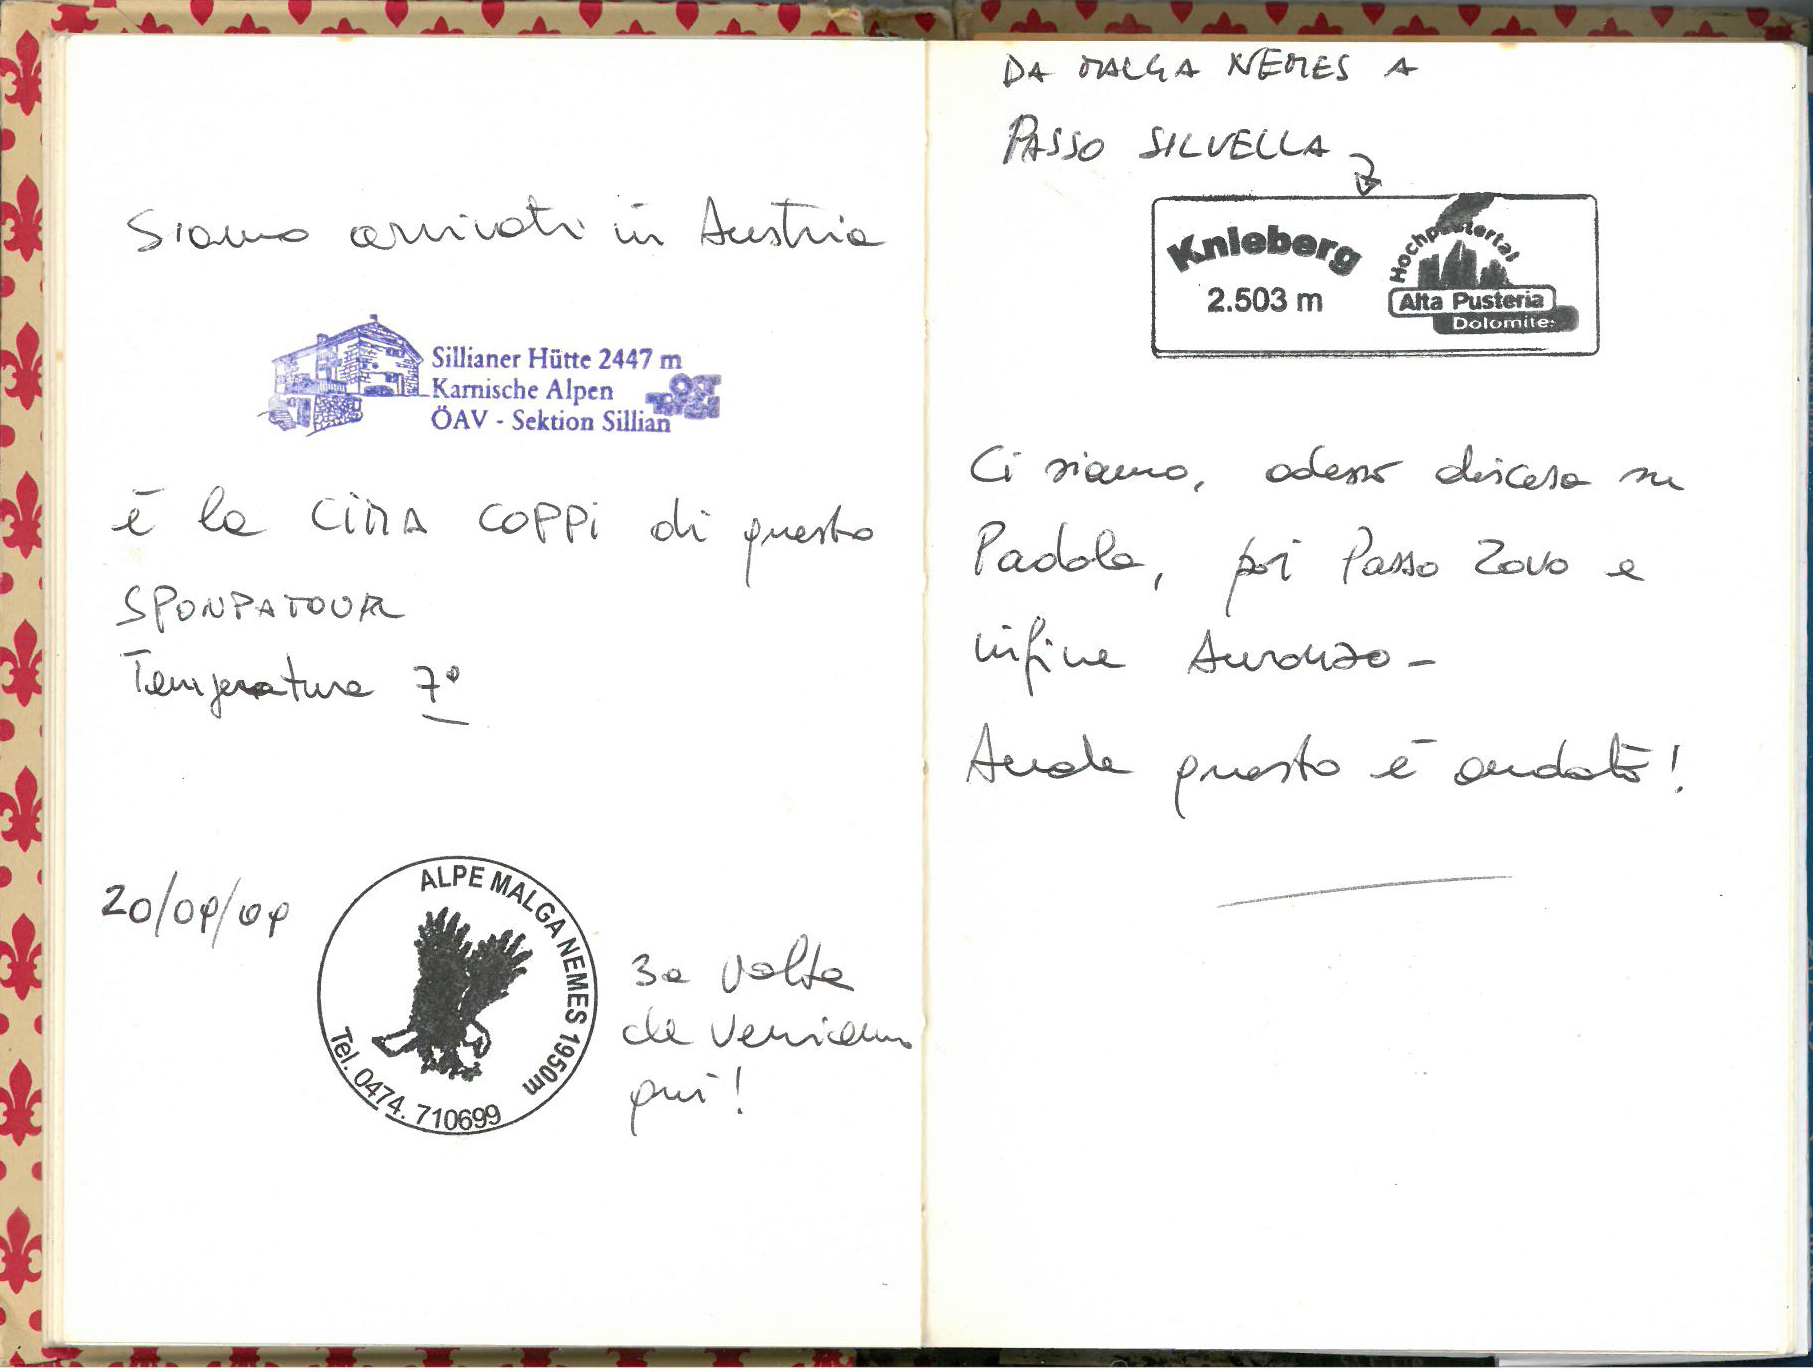 Siamo arrivati in Austria
Sillianer Hütte 2447 m
Karnische Alpen
ÖAV - Sektion Sillian
è la CIMA COPPI di questo
SPONPATOUR
Temperatura 7°
20/09/09
ALPE MALGA NEMES 1950m
Tel. 0474. 710699
3a volta
che veniamo
qui!
DA MALGA NEMES A
PASSO SILVELLA
Knieberg
2.503 m
Hochpustertal
Alta Pusteria
Dolomite
Ci siamo, adesso discesa su
Padola, poi Passo Zovo e
infine Auronzo -
Anche questo è andato!